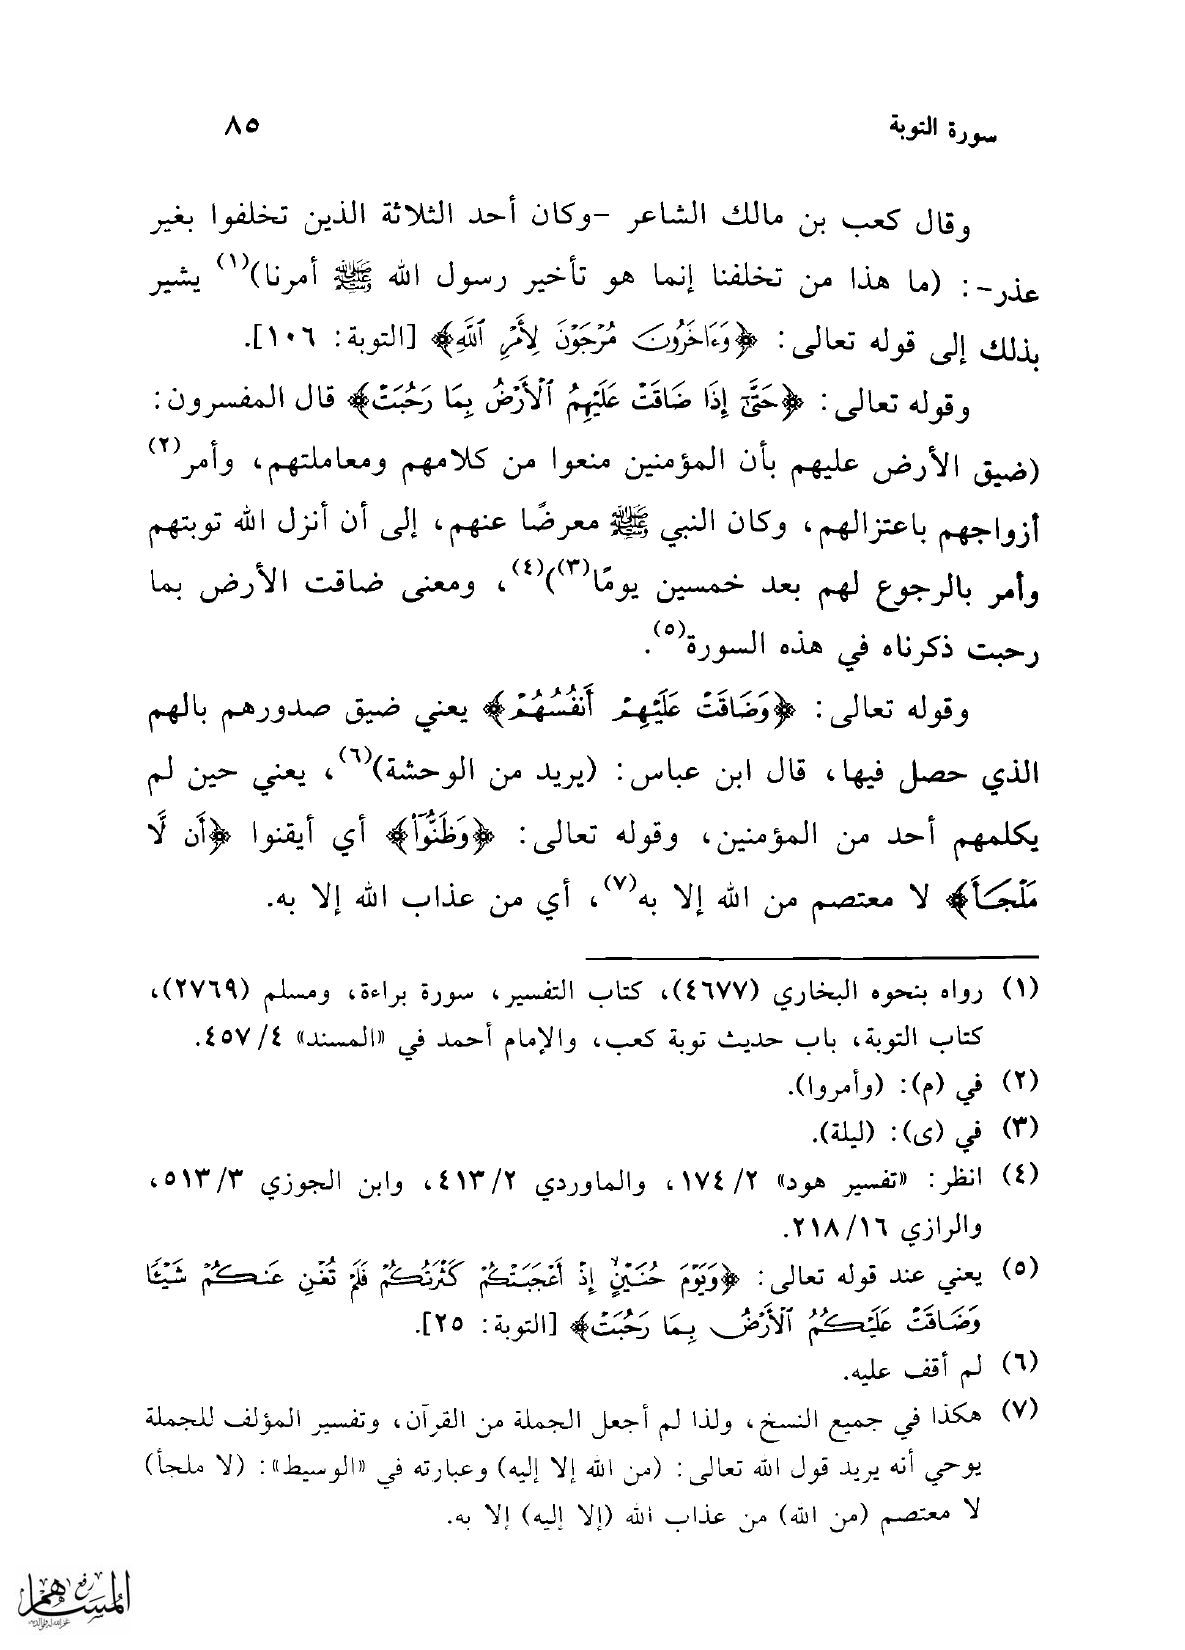 سورة التوبة ٨٥
وقال كعب بن مالك الشاعر -وكان أحد الثلاثة الذين تخلفوا بغير
عذر-: (ما هذا من تخلفنا إنما هو تأخير رسول الله ﷺ أمرنا)(١) يشير
بذلك إلى قوله تعالى: ﴿وَءَاخَرُونَ مُرْجَوْنَ لِأَمْرِ ٱللَّهِ﴾ [التوبة: ١٠٦].
وقوله تعالى: ﴿حَتَّىٰٓ إِذَا ضَاقَتْ عَلَيْهِمُ ٱلْأَرْضُ بِمَا رَحُبَتْ﴾ قال المفسرون:
(ضيق الأرض عليهم بأن المؤمنين منعوا من كلامهم ومعاملتهم، وأمر(٢)
أزواجهم باعتزالهم، وكان النبي ﷺ معرضًا عنهم، إلى أن أنزل الله توبتهم
وأمر بالرجوع لهم بعد خمسين يومًا(٣))(٤)، ومعنى ضاقت الأرض بما
رحبت ذكرناه في هذه السورة(٥).
وقوله تعالى: ﴿وَضَاقَتْ عَلَيْهِمْ أَنفُسُهُمْ﴾ يعني ضيق صدورهم بالهم
الذي حصل فيها، قال ابن عباس: (يريد من الوحشة)(٦)، يعني حين لم
يكلمهم أحد من المؤمنين، وقوله تعالى: ﴿وَظَنُّوٓا۟﴾ أي أيقنوا ﴿أَن لَّا
مَلْجَأَ﴾ لا معتصم من الله إلا به(٧)، أي من عذاب الله إلا به.
(١) رواه بنحوه البخاري (٤٦٧٧)، كتاب التفسير، سورة براءة، ومسلم (٢٧٦٩)،
كتاب التوبة، باب حديث توبة كعب، والإمام أحمد في «المسند» ٤/ ٤٥٧.
(٢) في (م): (وأمروا).
(٣) في (ى): (ليلة).
(٤) انظر: «تفسير هود» ٢/ ١٧٤، والماوردي ٢/ ٤١٣، وابن الجوزي ٣/ ٥١٣،
والرازي ١٦/ ٢١٨.
(٥) يعني عند قوله تعالى: ﴿وَيَوْمَ حُنَيْنٍ إِذْ أَعْجَبَتْكُمْ كَثْرَتُكُمْ فَلَمْ تُغْنِ عَنكُمْ شَيْئًا
وَضَاقَتْ عَلَيْكُمُ ٱلْأَرْضُ بِمَا رَحُبَتْ﴾ [التوبة: ٢٥].
(٦) لم أقف عليه.
(٧) هكذا في جميع النسخ، ولذا لم أجعل الجملة من القرآن، وتفسير المؤلف للجملة
يوحي أنه يريد قول الله تعالى: (من الله إلا إليه) وعبارته في «الوسيط»: (لا ملجأ)
لا معتصم (من الله) من عذاب الله (إلا إليه) إلا به.
رفع
المساهم